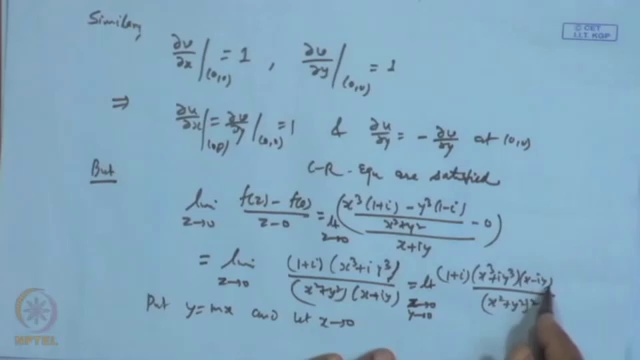 © CET
I.I.T. KGP
Similarly
∂v/∂x|(0,0) = 1 , ∂v/∂y|(0,0) = 1
⇒ ∂u/∂x|(0,0) = ∂v/∂y|(0,0) = 1 & ∂u/∂y = - ∂v/∂y at (0,0)
But C-R Equ are satisfied
lim z→0 f(z) - f(0) / z-0 = lt z→0 ( x³(1+i) - y³(1-i) / x²+y² - 0 ) / x+iy
= lim z→0 (1+i)(x³+iy³) / (x²+y²)(x+iy) = lt x→0 y→0 (1+i)(x³+iy³)(x-iy) / (x²+y²)²
Put y=mx and let x→0
NPTEL